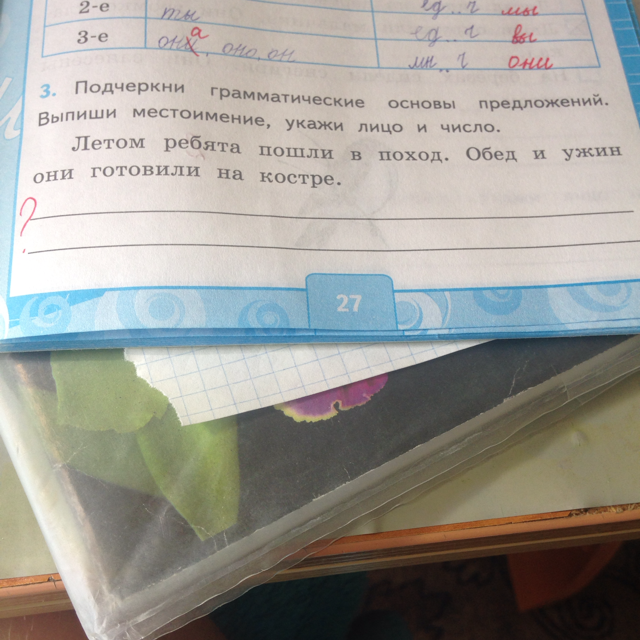 2-е ты ед. ч мы
3-е она, оно, он ед. ч вы
мн. ч они
3. Подчеркни грамматические основы предложений.
Выпиши местоимение, укажи лицо и число.
Летом ребята пошли в поход. Обед и ужин
они готовили на костре.
?
27